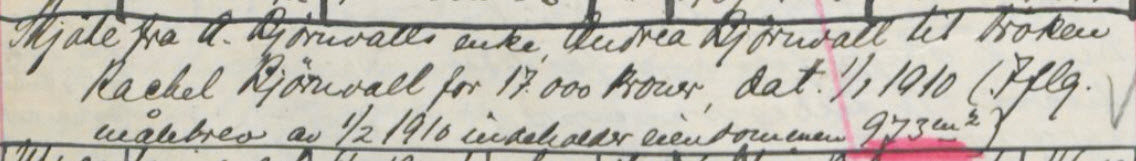 Skjöte fra A. Björnvalls enke, Andrea Björnvall til fröken
Rachel Björnvall for 17.000 kroner, dat. 1/1 1910 (Iflg.
målebrev av 1/2 1910 indeholder eiendommen 973 m²)